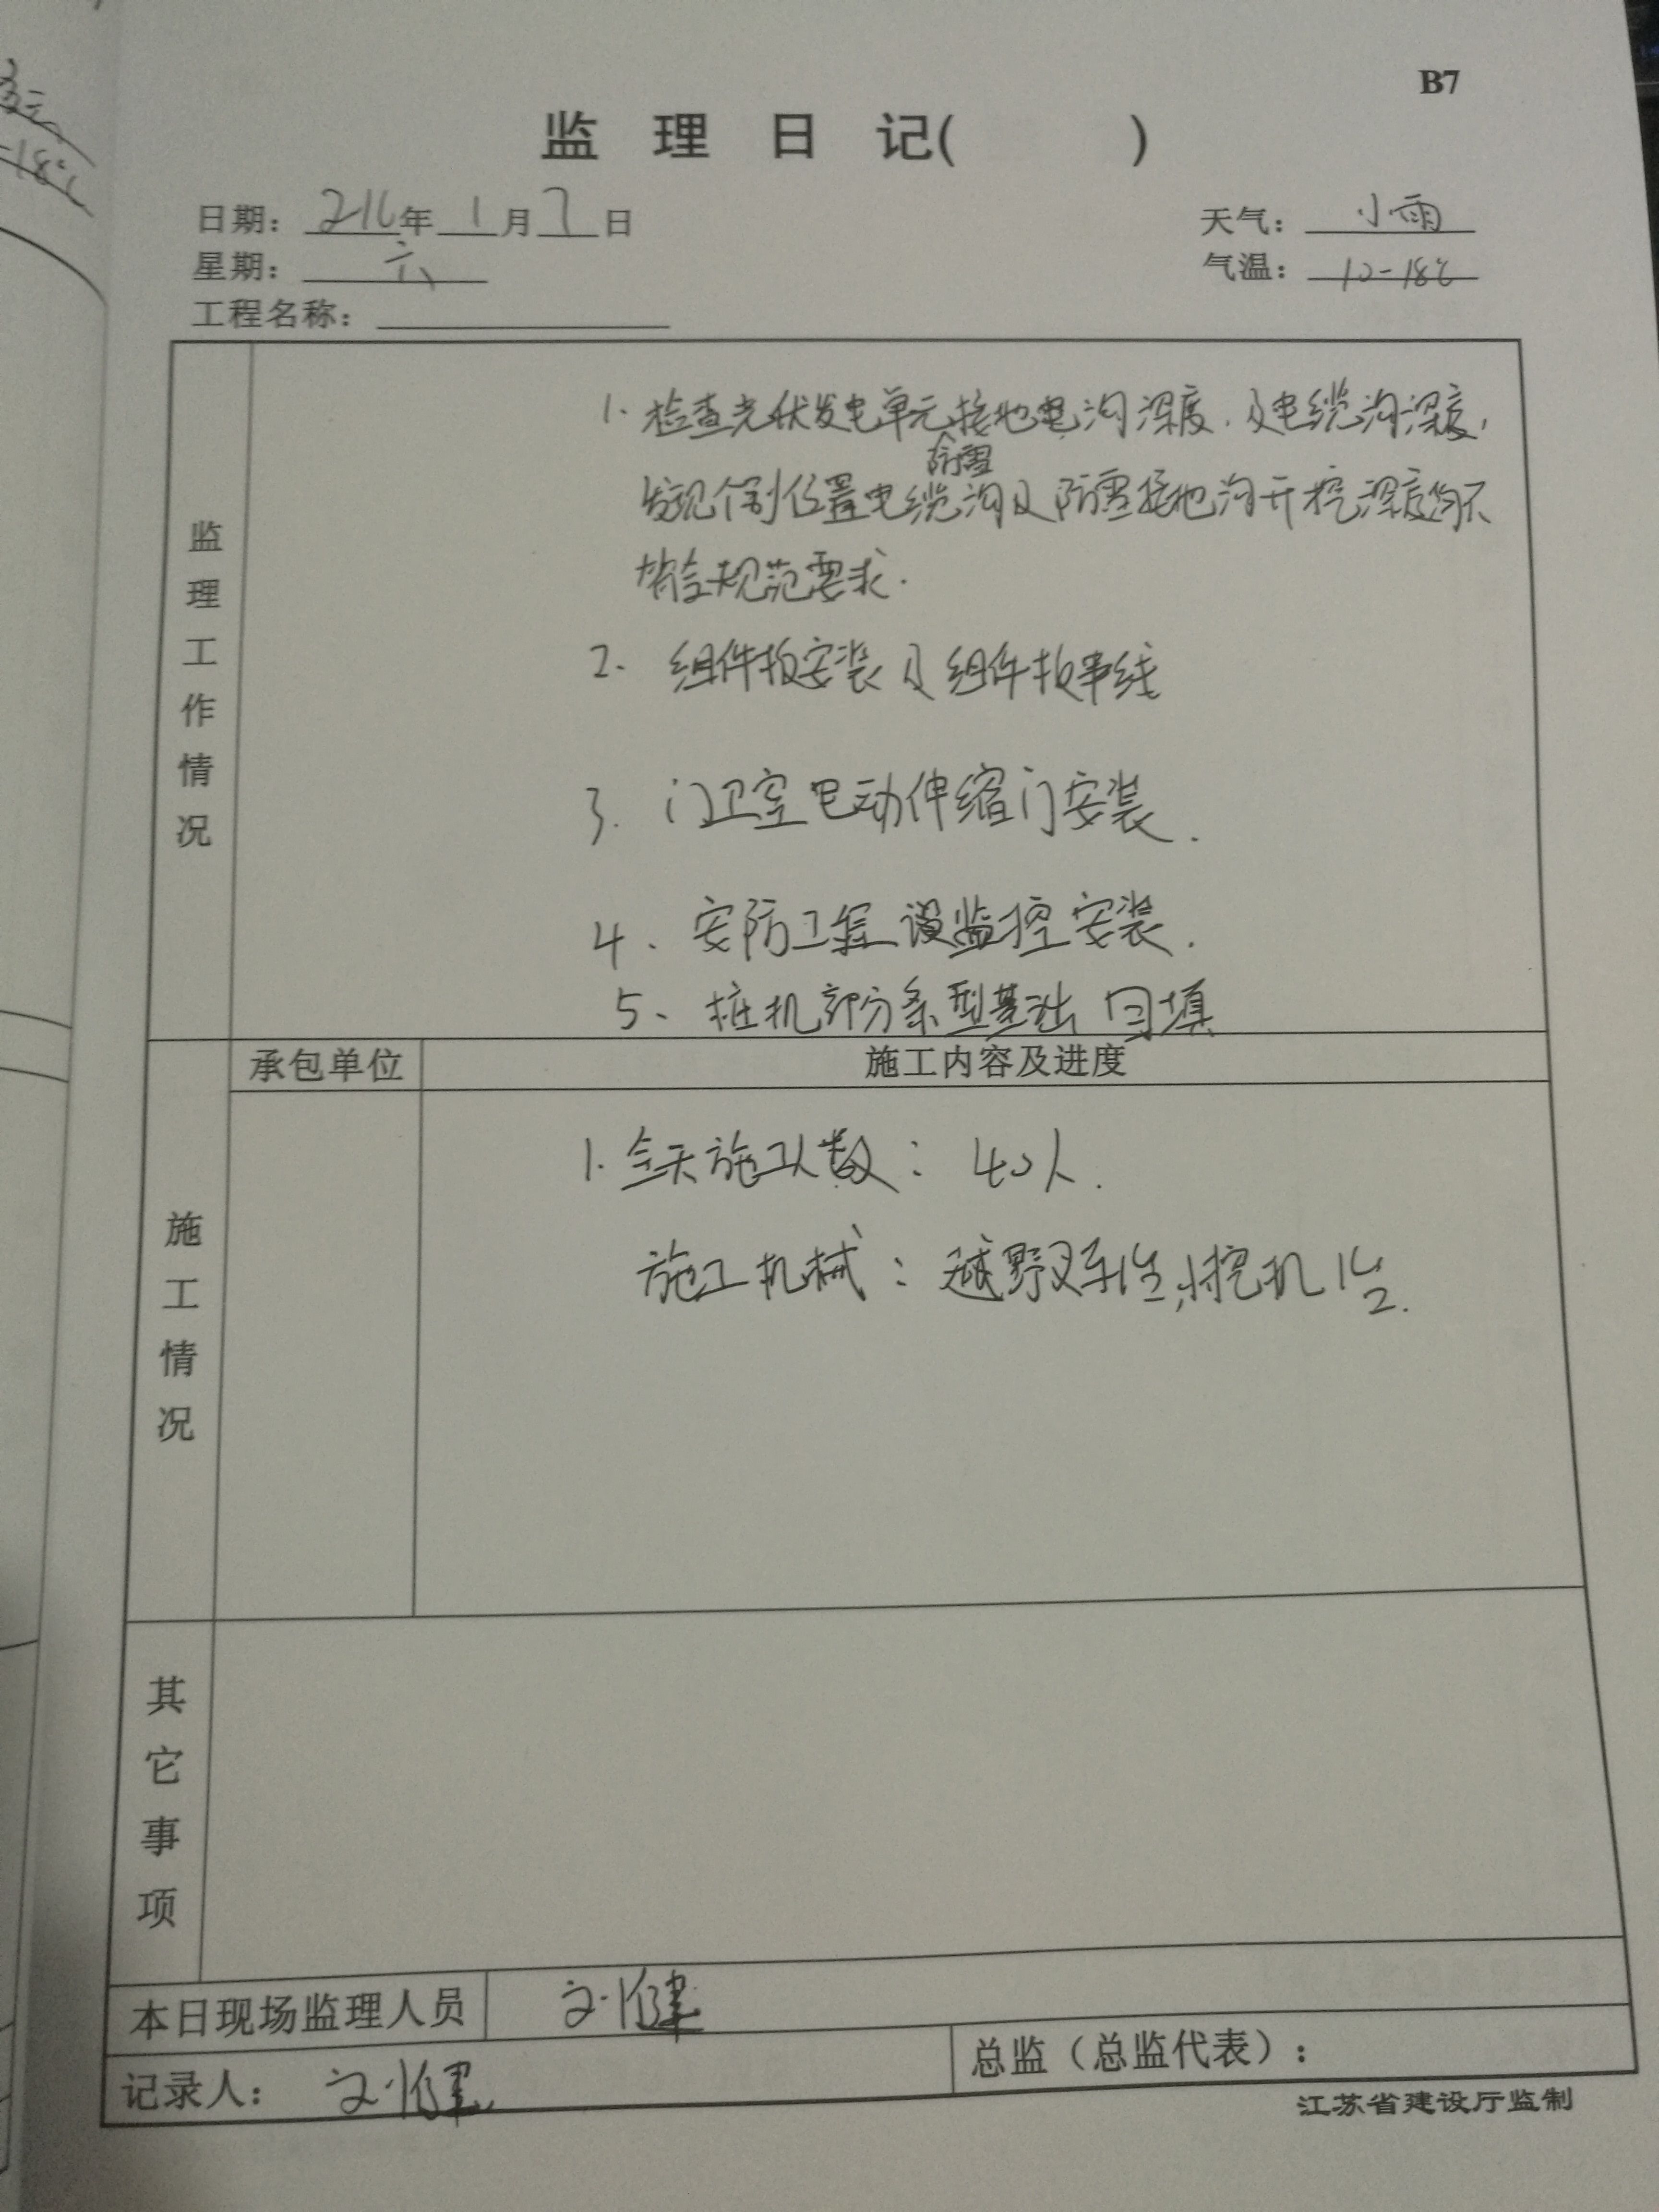 B7
监理日记( )
日期： 216年1月7日
天气： 小雨
星期： 六
气温： 10-18℃
工程名称：
监理工作情况
1. 检查光伏发电单元接地电沟深度，及电缆沟深度，
防雷
发现个别位置电缆沟及防雷接地沟开挖深度均不
符合规范要求.
2. 组件板安装及组件板串线
3. 门卫室电动伸缩门安装.
4、安防工程设监控安装.
5、桩机部分条型基础 回填
承包单位 施工内容及进度
施工情况
1. 今天施工人数： 40人.
施工机械：越野叉车1台，小挖机1台.
其它事项
本日现场监理人员
记录人：
总监（总监代表）：
江苏省建设厅监制
-18℃